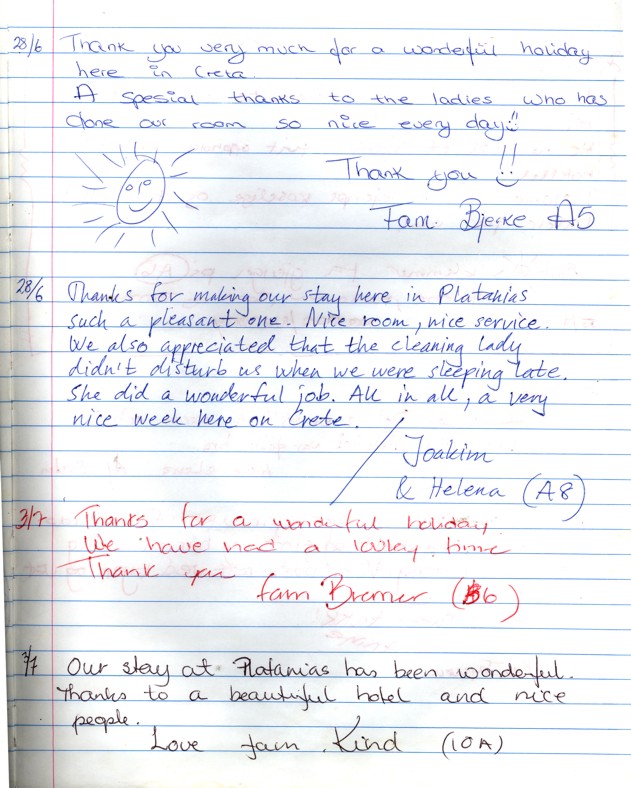 28/6 Thank you very much for a wonderful holiday
here in Creta.
A spesial thanks to the ladies who has
done our room so nice every day!!
Thank you !!
Fam. Bjerke A5
28/6 Thanks for making our stay here in Platanias
such a pleasant one. Nice room, nice service.
We also appreciated that the cleaning lady
didn't disturb us when we were sleeping late.
She did a wonderful job. All in all, a very
nice week here on Crete.
Joakim
& Helena (A8)
3/7 Thanks for a wonderful holiday.
We have had a lovley time
Thank you
fam Bremer (B6)
3/7 Our stay at Platanias has been wonderful.
Thanks to a beautyful hotel and nice
people.
Love fam. Kind (10A)